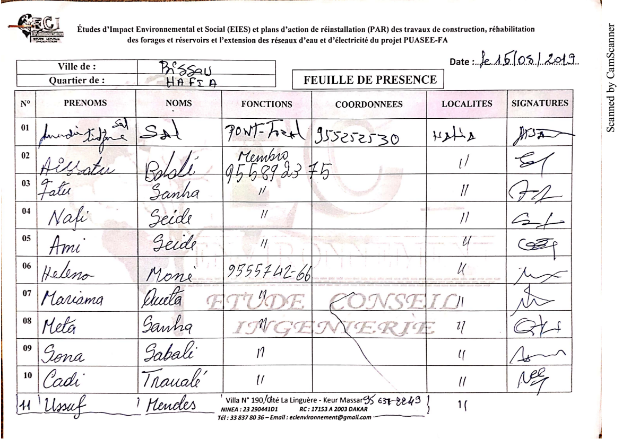 Études d'Impact Environnemental et Social (EIES) et plans d'action de réinstallation (PAR) des travaux de construction, réhabilitation
des forages et réservoirs et l'extension des réseaux d'eau et d'électricité du projet PUASEE-FA
Date : le 15/05/2019
Ville de : Bissau
Quartier de : HAFIA
FEUILLE DE PRESENCE
N° PRENOMS NOMS FONCTIONS COORDONNEES LOCALITES SIGNATURES
01 Sall PONT-Focal 955252530 Hafia
02 Aissatu Baldé Membro 955892375 //
03 Fatu Sanha // //
04 Nafi Seide // //
05 Ami Seide // //
06 Heleno Mone 9555742-66 //
07 Mariama // //
08 Meta Sanha // //
09 Sona Sabali // //
10 Cadi Traualé // //
11 Ussuf Mendes 95 638-2249 //
ENVIRONNEMENT
ETUDE CONSEIL
INGENIERIE
Villa N° 190/Cité La Linguère - Keur Massar
NINEA : 23 2904401 RC : 17153 A 2003 DAKAR
Tél : 33 837 80 36 – Email : eclenvironnement@gmail.com
Scanned by CamScanner